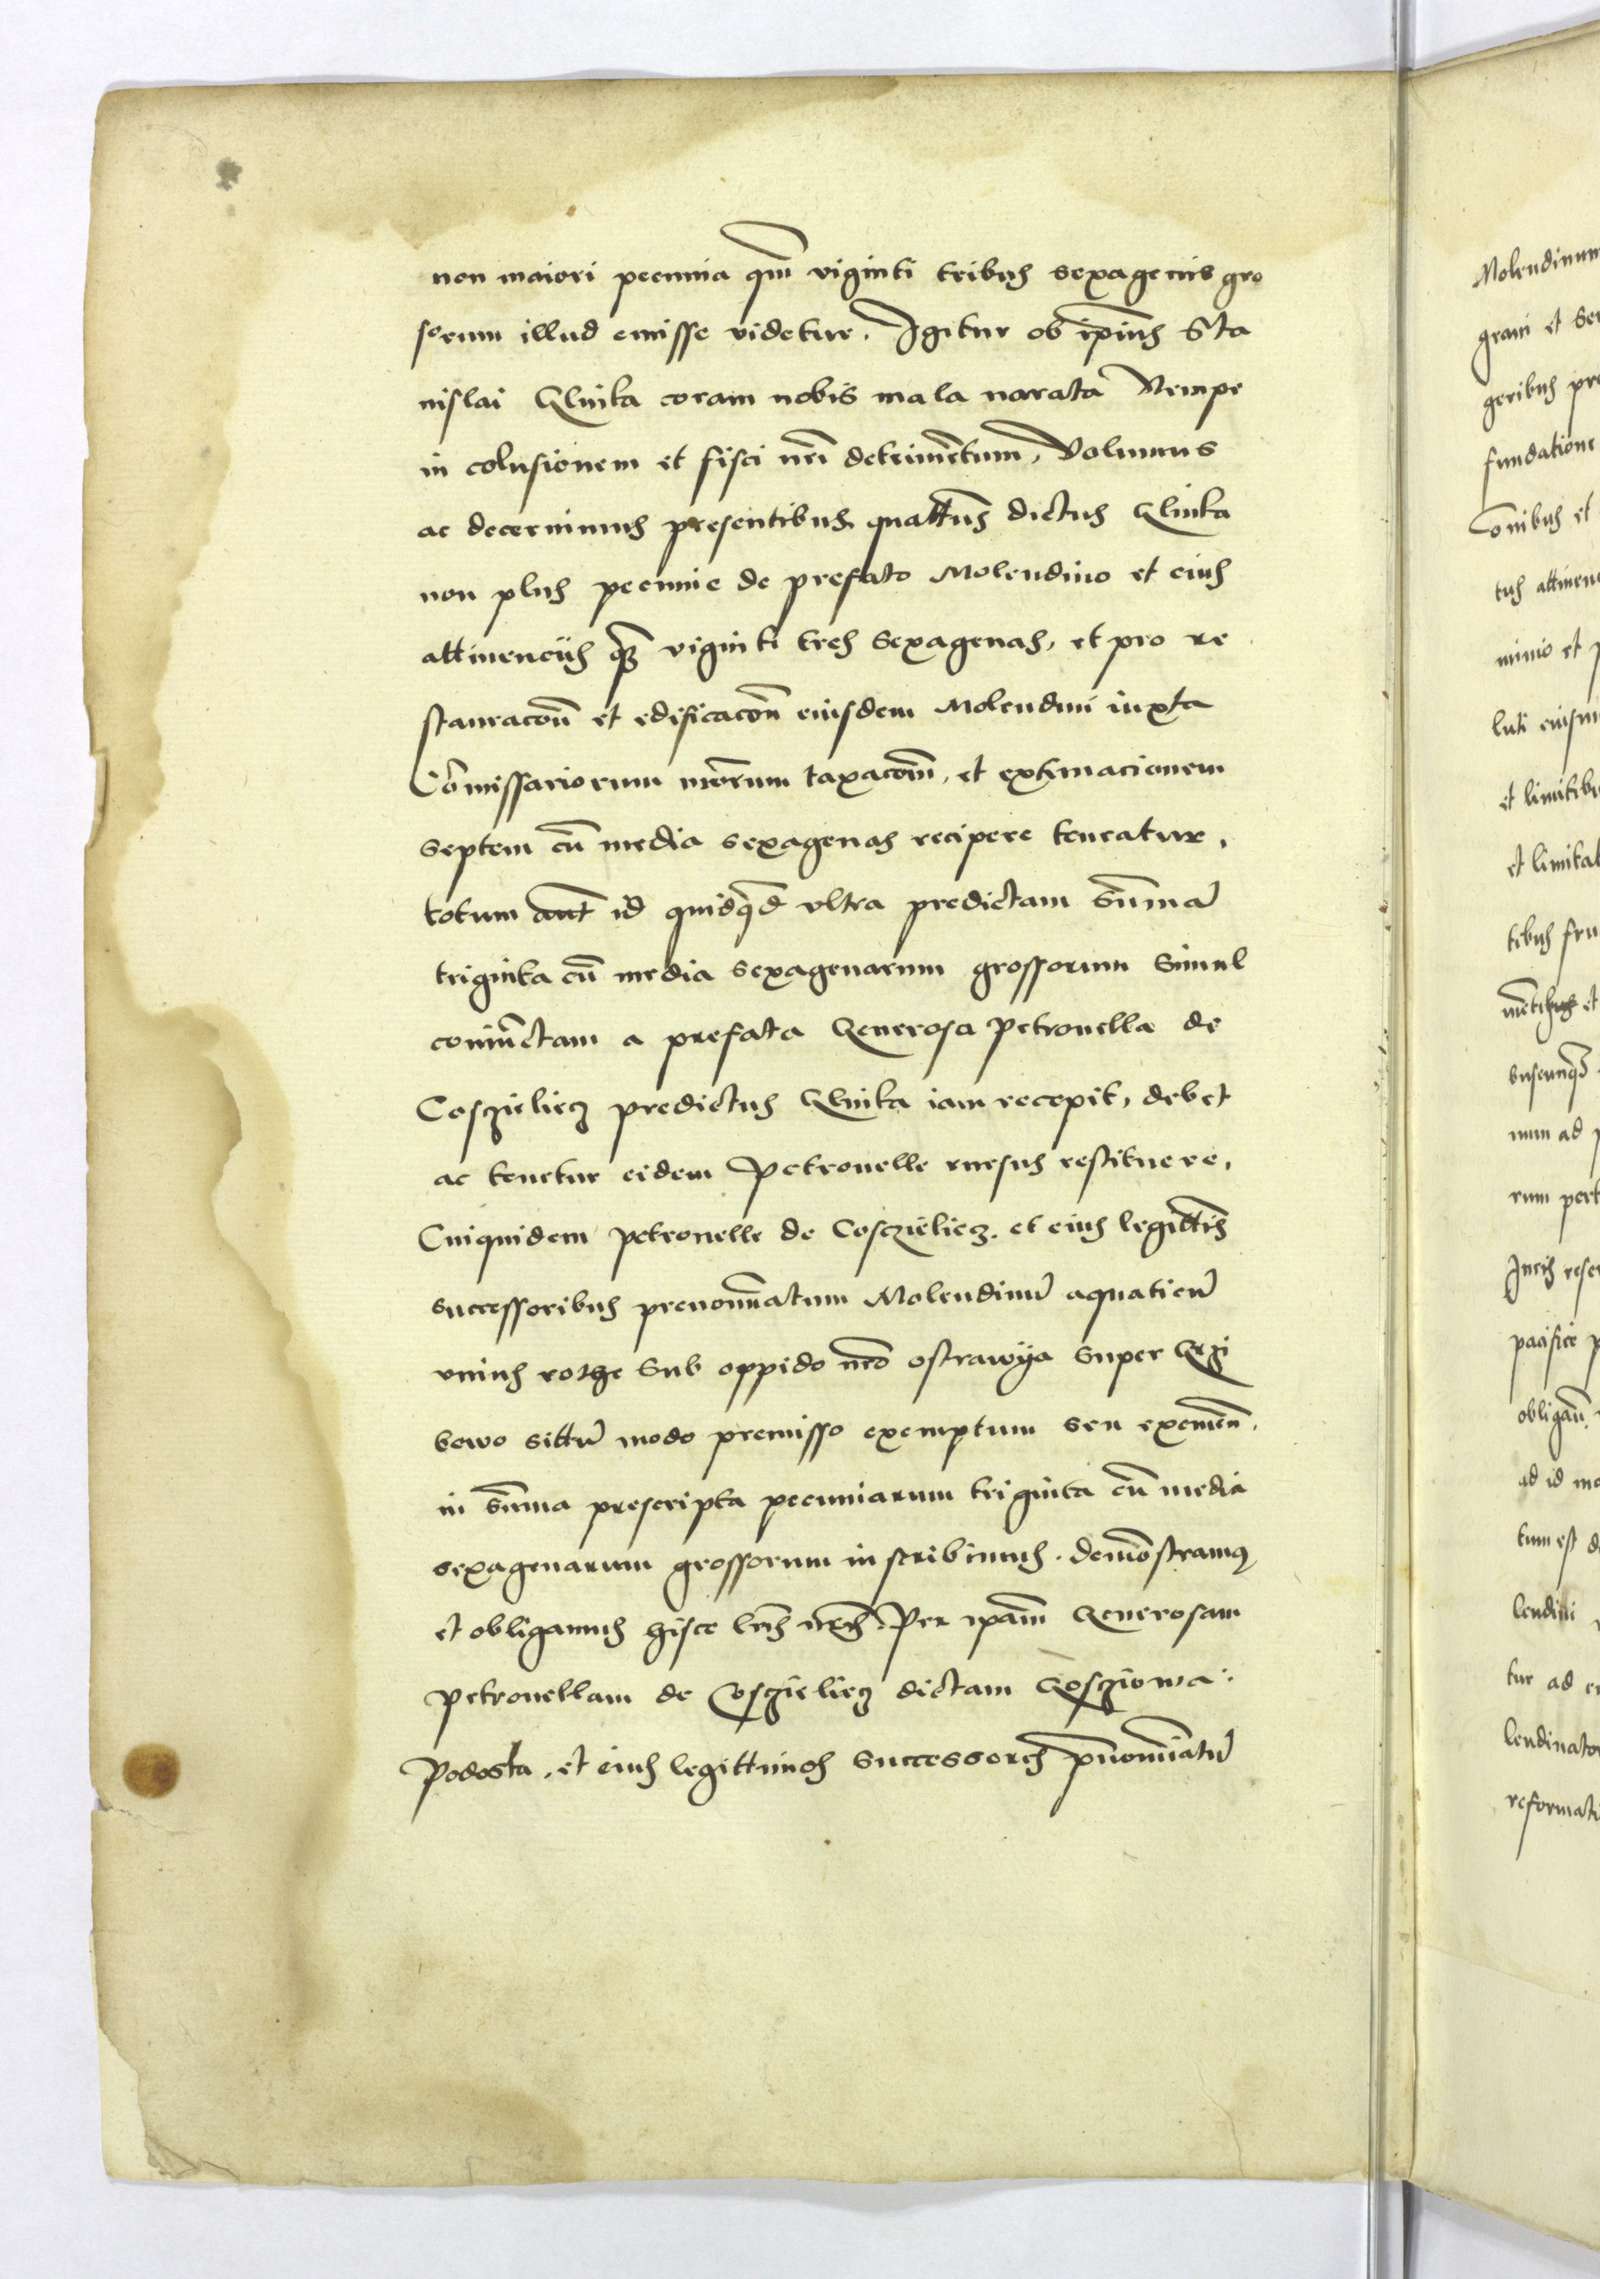 non maiori pecunia qm̄ viginti tribus sexagenis gro
sorum illud emisse videtur. Igitur ob ip̄ius Sta
nislai Glinka coram nobis mala narrata Nempe
in colusionem et fisci nr̄i detrimētum, Volumus
ac decernimus presentibus, quattūs dictus Glinka
non plus pecunie de prefato Molendino et eius
attinencijs qz̄ viginti tres sexagenas, et pro re
stauracōn et edificacōn eiusdem Molendini iuxta
Cōmissariorum nrōrum taxacōm̄, et extimacionem
septem cū media sexagenas recipere teneatur,
totum aut̄ id quidqd̄ vltra predictam sūmā
triginta cū media sexagenarum grossorum simul
coniūctam a prefata Generosa Petronella de
Cosczieliecz predictus Glinka iam recepit, debet
ac tenetur eidem Petronelle rursus restituere,
Cuiquidem Petronelle de Cosczieliecz. et eius legittīs
successoribus prenomīatum Molendinū aquaticū
vnius rothe sub oppido nr̄o ostrawija super Gzi
bowo sittū modo premisso exemptum seu exemēn.
in sūma prescripta pecuniarum triginta cū media
sexagenarum grossorum inscribimus. demōstramꝰ
et obligamus hisce lr̄is nr̄is. Per ip̄am Generosam
Petronellam de Cosczieliecz dictam Gosziowa:
Podosta, et eius legittimos successores pn̄omīatū
Molendinum
grani et
geribus
fundatione
onibus et
tus
minio et
luti
et
et
tibus
mētibus et
num ad
rum
pacifice
ad id
tum est
lendini
tur ad